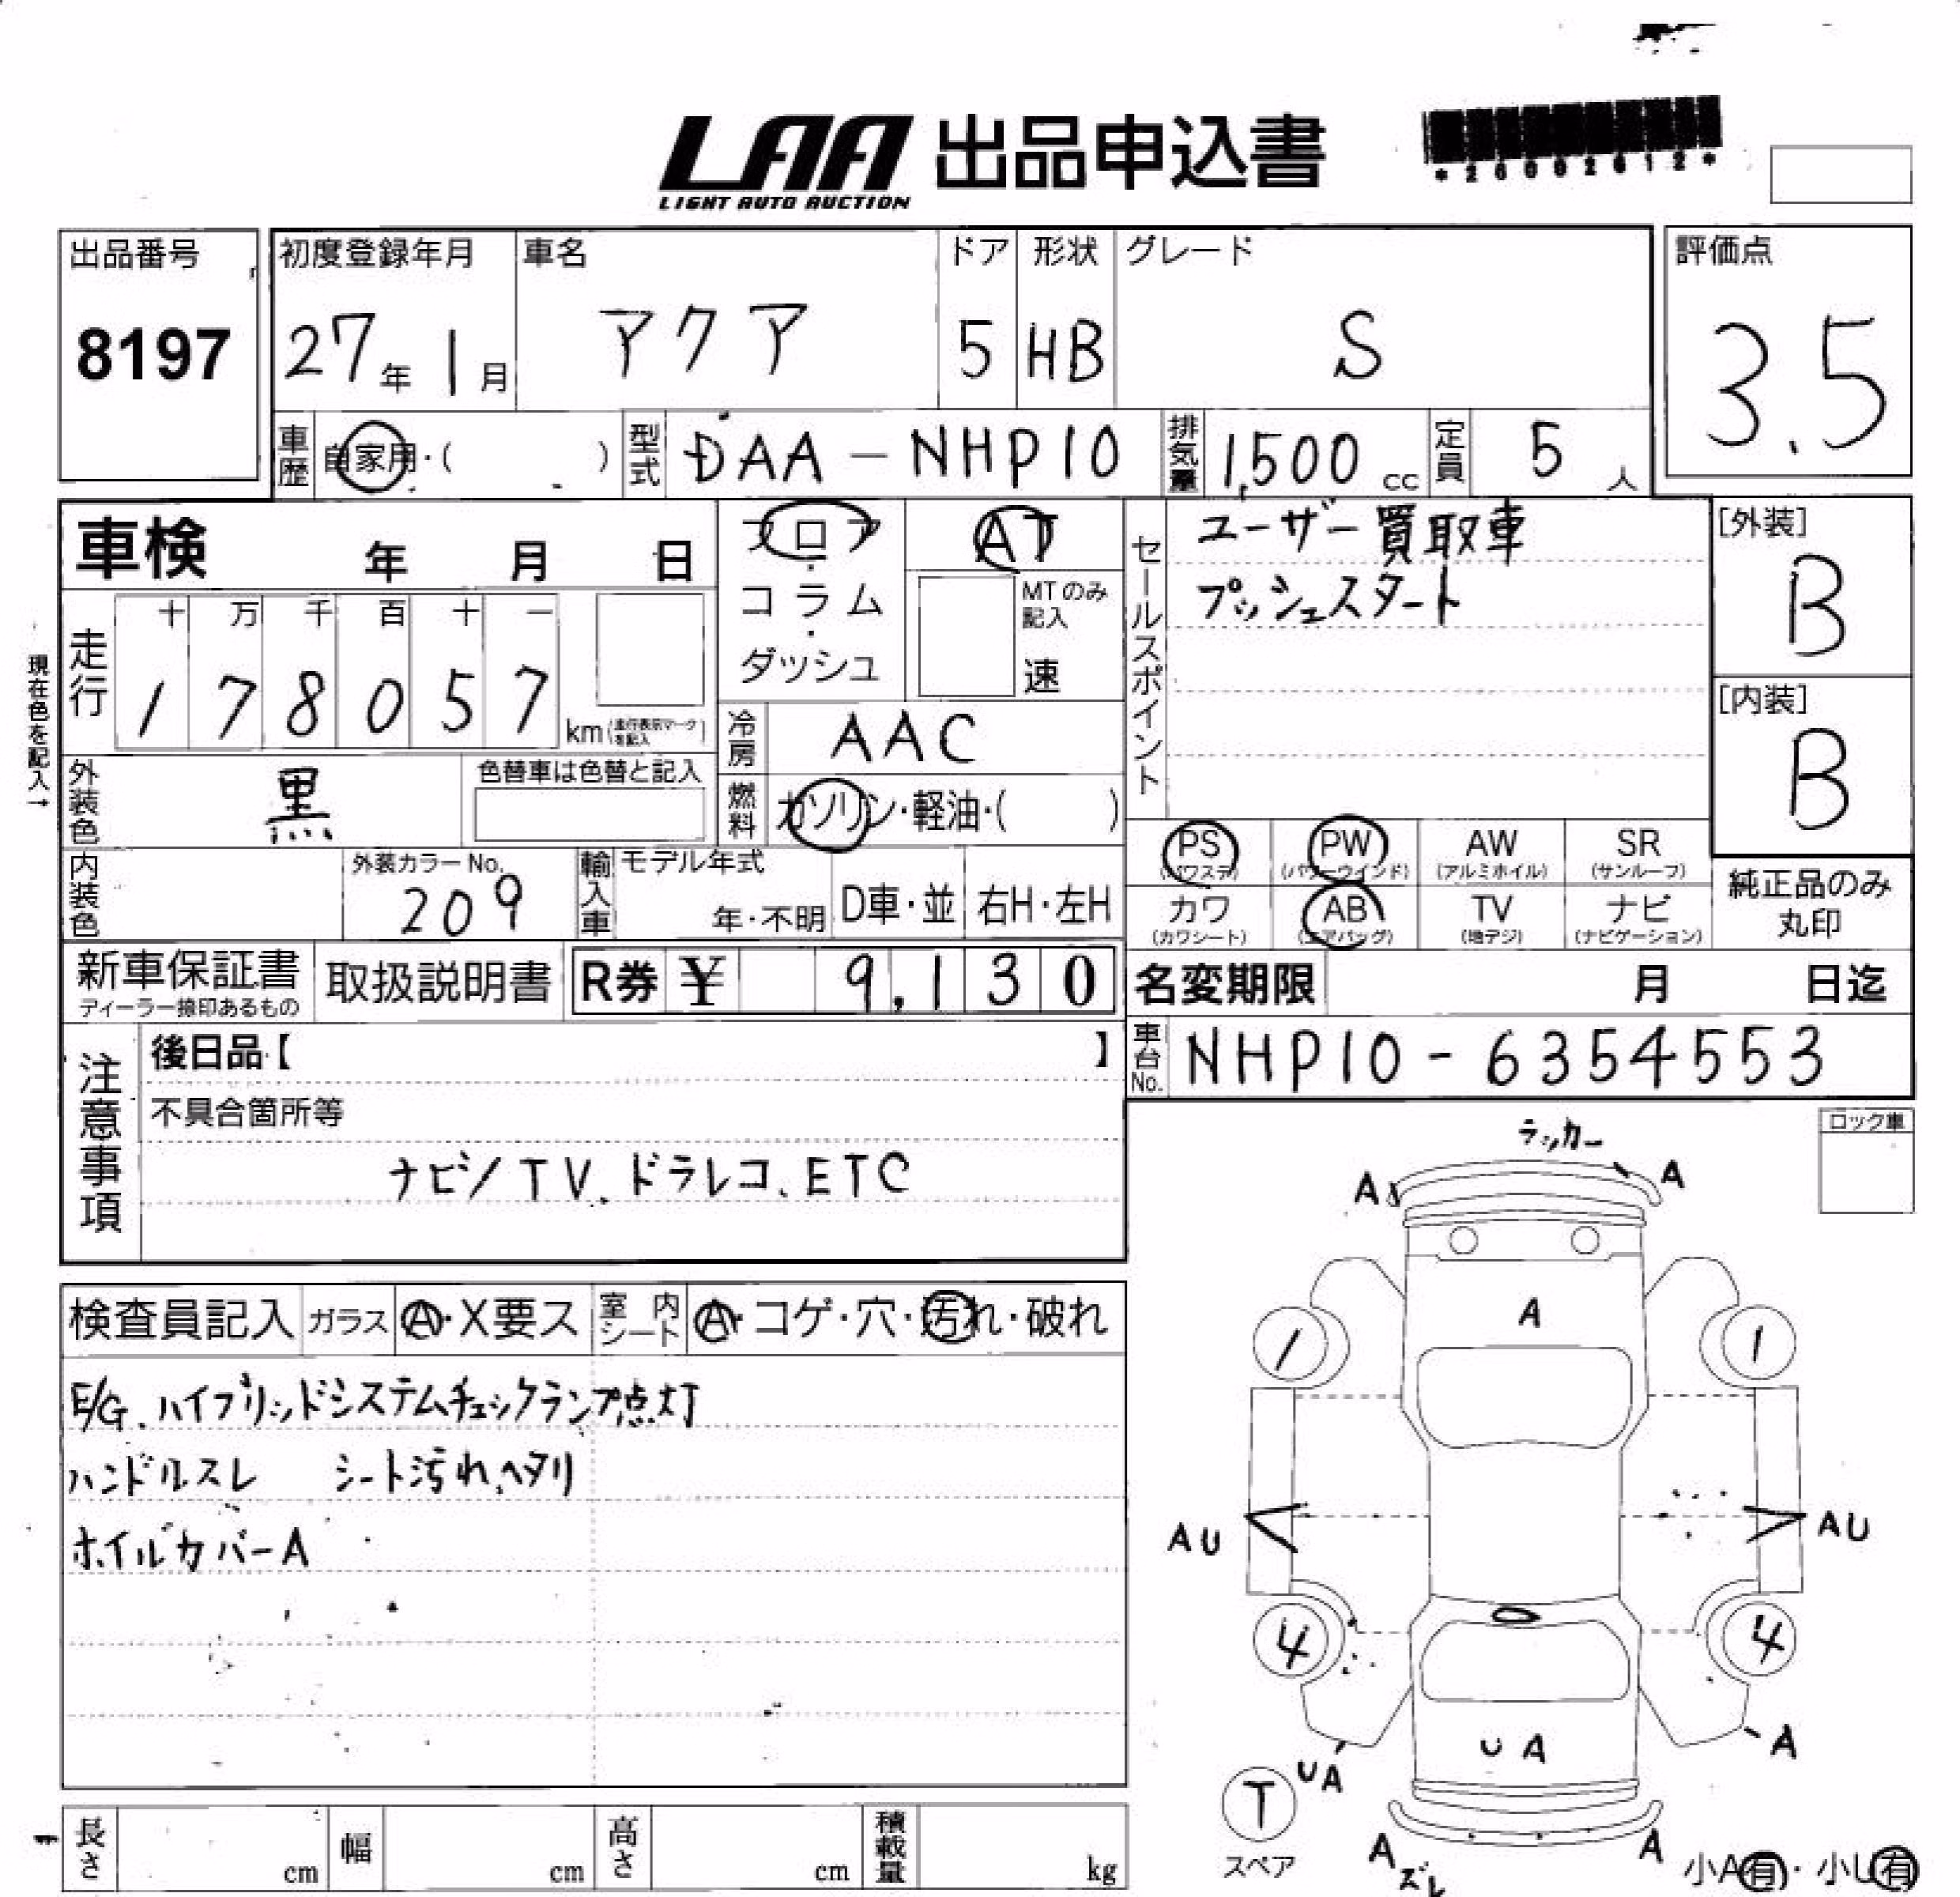 LAA 出品申込書
LIGHT AUTO AUCTION
*20002612*
出品番号
8197
初度登録年月
27年 1月
車名
アクア
ドア
5
形状
HB
グレード
S
評価点
3.5
車歴 自家用・( )
型式 DAA-NHP10
排気量 1,500 cc
定員 5 人
車検 年 月 日
フロア・コラム・ダッシュ
AT
MTのみ記入
速
セールスポイント
ユーザー買取車
プッシュスタート
[外装]
B
[内装]
B
現在色を記入→
走行
十 万 千 百 十 一
1 7 8 0 5 7 km(走行表示マークを記入)
冷房 AAC
外装色 黒
色替車は色替と記入
燃料 ガソリン・軽油・( )
PS (パワステ)
PW (パワーウインド)
AW (アルミホイル)
SR (サンルーフ)
カワ (カワシート)
AB (エアバッグ)
TV (地デジ)
ナビ (ナビゲーション)
純正品のみ丸印
内装色
外装カラーNo.
209
輸入車
モデル年式
年・不明
D車・並
右H・左H
新車保証書
ディーラー捺印あるもの
取扱説明書
R券 ¥ 9,130
名変期限 月 日迄
車台No. NHP10-6354553
注意事項
後日品【 】
不具合箇所等
ナビ/TV、ドラレコ、ETC
ロック車
検査員記入
ガラス A・X要ス
室内シート A・コゲ・穴・汚れ・破れ
E/G、ハイブリッドシステムチェックランプ点灯
ハンドルスレ シート汚れ、ヘタリ
ホイルカバーA
ラッカー
A A
A
1 1
AU AU
4 4
UA UA A
T
スペア
A ズレ A
小A有・小U有
長さ cm
幅 cm
高さ cm
積載量 kg